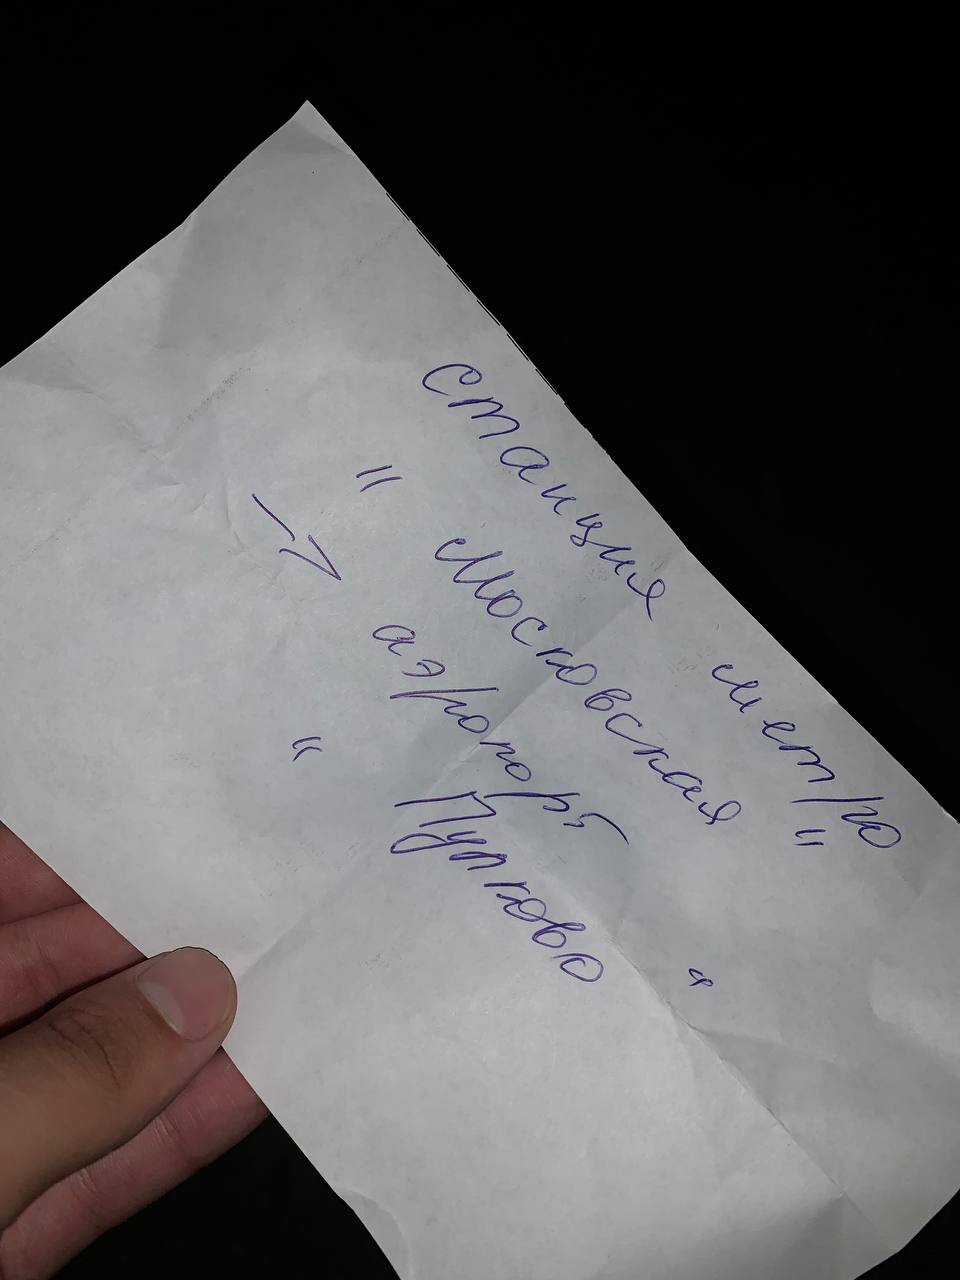 станция метро
" Московская "
→ аэропорт
" Пулково "